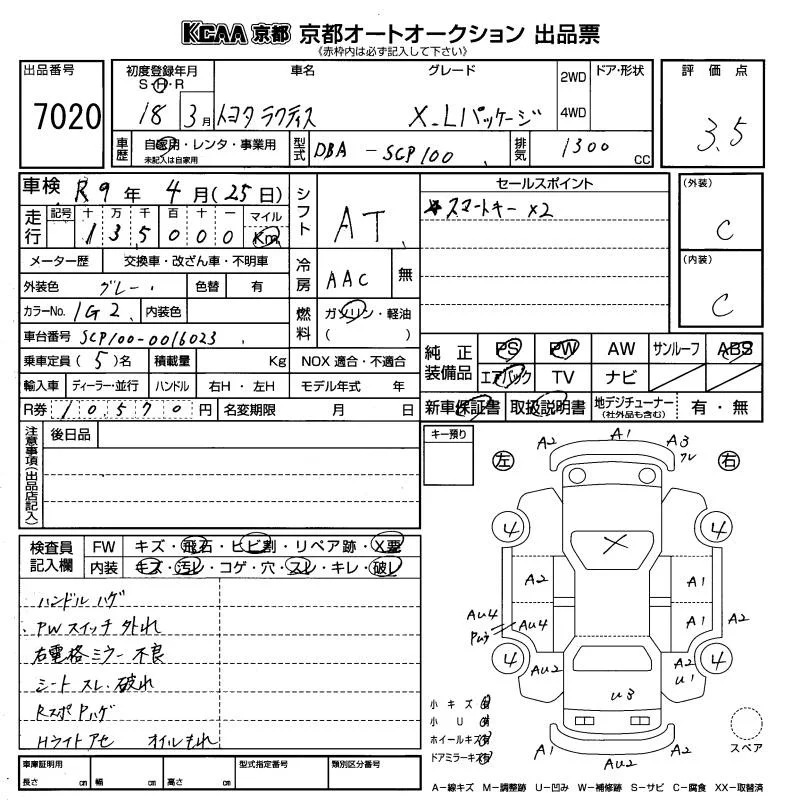 KCAA 京都 京都オートオークション 出品票
《赤枠内は必ず記入して下さい》
出品番号
7020
初度登録年月
S・H・R
18 3月
車名
トヨタ ラクティス
グレード
X-Lパッケージ
2WD
4WD
ドア・形状
評価点
3.5
車歴
自家用・レンタ・事業用
未記入は自家用
型式
DBA-SCP100
排気
1300 CC
車検 R9年 4月(25日)
走行
記号 十 万 千 百 十 一 マイル
1 3 5 0 0 0 Km
メーター歴 交換車・改ざん車・不明車
外装色 グレー 色替 有
カラーNo. 1G2 内装色
車台番号 SCP100-0016023
乗車定員(5)名 積載量 Kg
輸入車 ディーラー・並行 ハンドル 右H・左H
R券 10570円 名変期限 月 日
シフト
AT
冷房
AAC 無
燃料
ガソリン・軽油
( )
NOX 適合・不適合
モデル年式 年
セールスポイント
☆スマートキー x2
(外装)
C
(内装)
C
純正装備品
PS PW AW サンルーフ ABS
エアバック TV ナビ
新車保証書 取扱説明書 地デジチューナー(社外品も含む) 有・無
注意事項(出品店記入)
後日品
キー預り
検査員記入欄
FW キズ・飛石・ヒビ割・リペア跡・X要
内装 キズ・汚レ・コゲ・穴・スレ・キレ・破レ
ハンドル ハゲ
PWスイッチ 外れ
右電格ミラー 不良
シート スレ・破れ
RスポPハゲ
Hライトアセ オイルもれ
車庫証明用
長さ cm 幅 cm 高さ cm
型式指定番号
類別区分番号
左
右
A2 A1 A3
ワレ
4 4
X
A2 A1
AU4 AU4 A1 A2
4 4
AU2 A2
U1
U3
A1 AU2 A2
小キズ 有
小U 有
ホイールキズ 有
ドアミラーキズ 有
スペア
A-線キズ M-調整跡 U-凹み W-補修跡 S-サビ C-腐食 XX-取替済